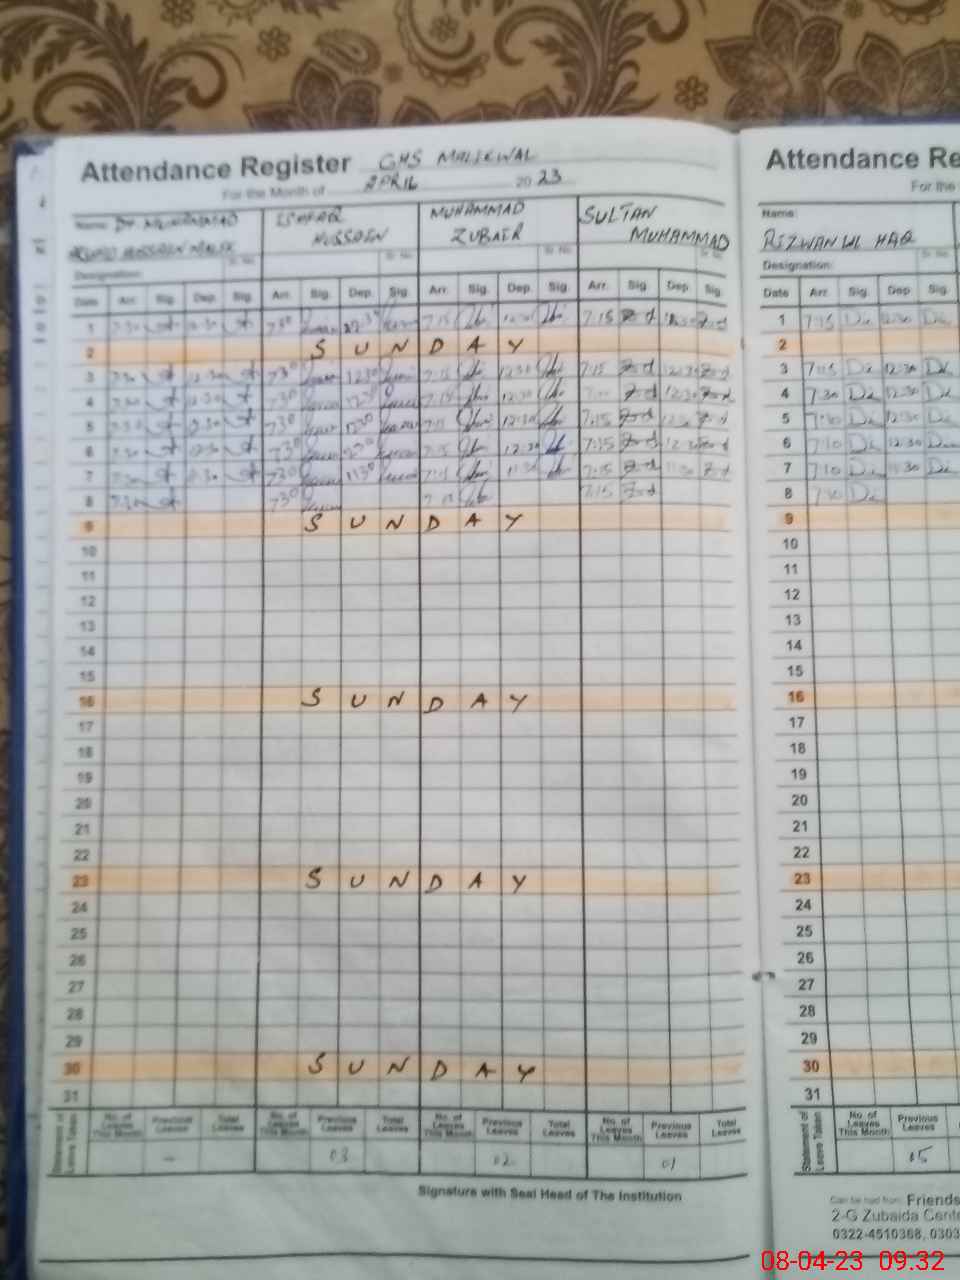 Attendance Register GHS MALIEWAL
For the Month of APRIL 2023
Name: Dr. MUHAMMAD
HUSSAIN MALIK
ISHFAQ
HUSSAIN
MUHAMMAD
ZUBAIR
SULTAN
MUHAMMAD
Sr. No. Sr. No. Sr. No. Sr. No.
Designation:
Date Arr. Sig. Dep. Sig. Arr. Sig. Dep. Sig. Arr. Sig. Dep. Sig. Arr. Sig. Dep. Sig.
1 7:30 12:30 730 7:15 12:30 7:15
2 SUNDAY
3 7:30 12:30 730 1230 7:15 12:30 7:15 12:30
4 7:30 12:30 730 1230 7:15 12:30 12:30
5 7:30 12:30 730 1230 7:15 12:30 7:15
6 7:30 12:30 730 7:15 12:30 7:15 12:30
7 7:30 730 1130 7:15 11:30 7:15 11:30
8 7:30 730 7:15 7:15
9 SUNDAY
10
11
12
13
14
15
16 SUNDAY
17
18
19
20
21
22
23 SUNDAY
24
25
26
27
28
29
30 SUNDAY
31
Statement of Leave Taken
No. of Leaves This Month Previous Leaves Total Leaves No. of Leaves This Month Previous Leaves Total Leaves No. of Leaves This Month Previous Leaves Total Leaves No. of Leaves This Month Previous Leaves Total Leaves
- 03 02 01
Signature with Seal Head of The Institution
Attendance Re
For the
Name:
RIZWAN UL HAQ
Sr. No.
Designation:
Date Arr. Sig. Dep. Sig.
1 7:15 12:30
2
3 7:15 12:30
4 7:30 12:30
5 7:30 12:30
6 7:10 12:30
7 7:10 11:30
8 7:10
9
10
11
12
13
14
15
16
17
18
19
20
21
22
23
24
25
26
27
28
29
30
31
Statement of Leave Taken
No. of Leaves This Month Previous Leaves
05
Can be had from: Friends
2-G Zubaida Cente
0322-4510368, 0303
08-04-23 09.32